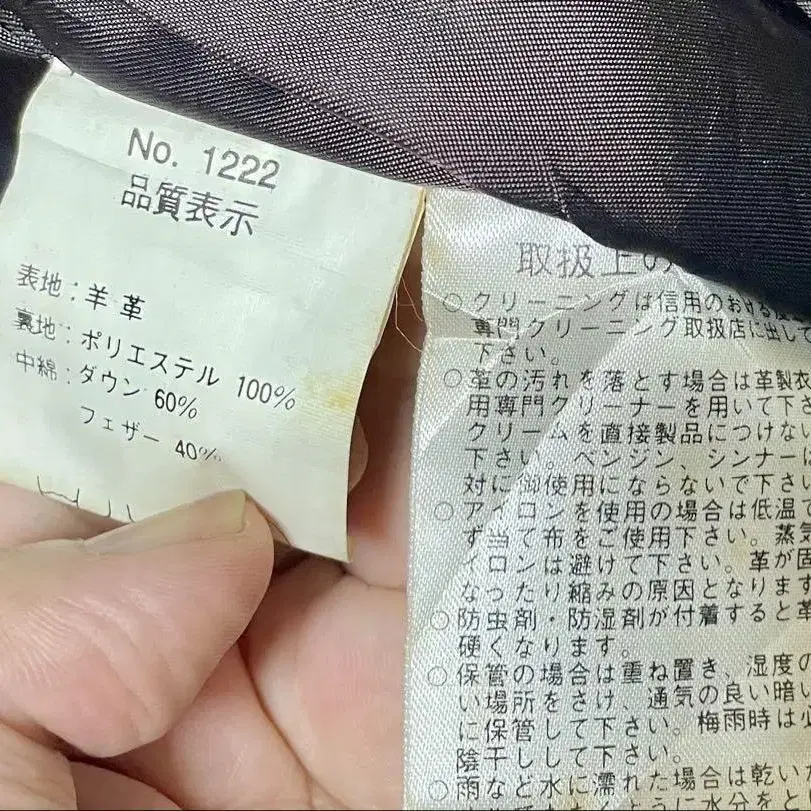 No. 1222
品質表示
表地：羊革
裏地：ポリエステル 100%
中綿：ダウン 60%
フェザー 40%
取扱上の
○クリーニングは信用のおける
専門クリーニング取扱店に出して
下さい。
○革の汚れを落とす場合は革製衣
用専門クリーナーを用いて下さ
クリームを直接製品につけない
下さい。ベンジン、シンナーは
対に御使用にならないで下さ
○アイロンを使用の場合は低温
ず当て布をご使用下さい。蒸気
イロンは避けて下さい。革が固
なったり縮みの原因となります
○防虫剤・防湿剤が付着すると革
硬くなります。
○保管の場合は重ね置き、湿度の
い場所をさけ、通気の良い暗い
に保管して下さい。梅雨時は
陰干しして下さい。
○雨など水に濡れた場合は乾いた